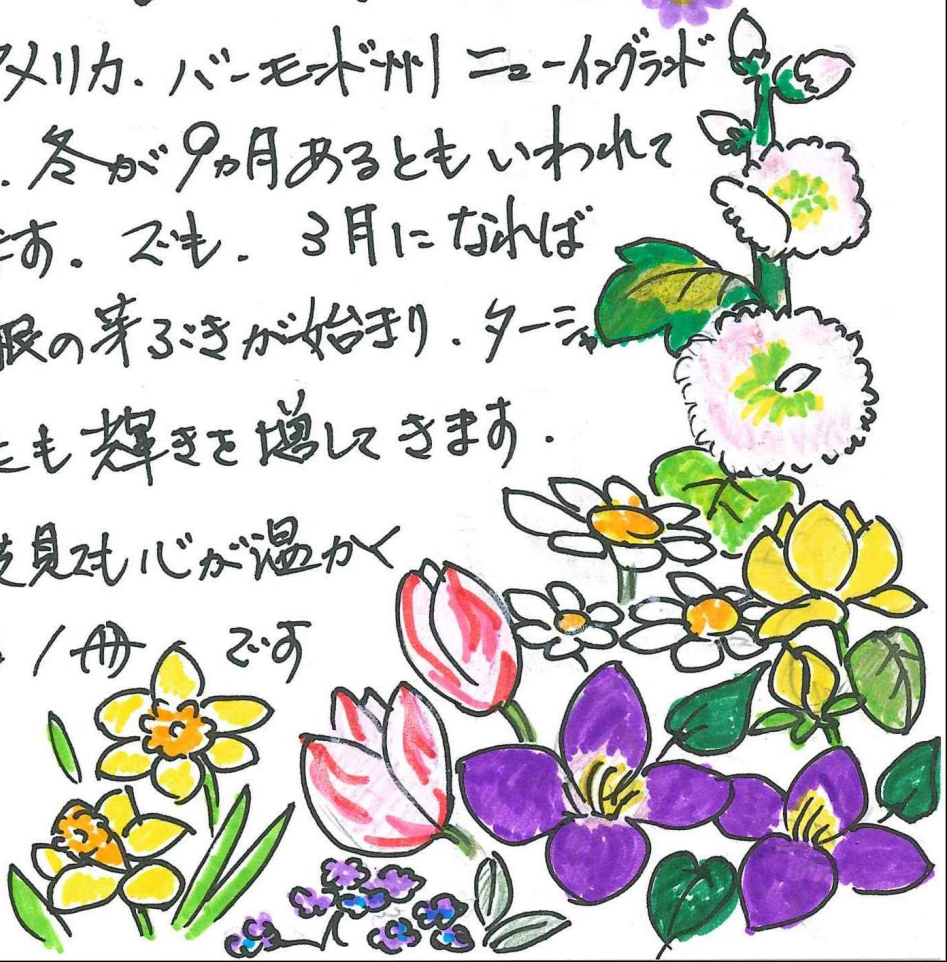 アメリカ.バーモンド州 ニューイングランド
.冬が9ヵ月あるともいわれて
ます。でも.3月になれば
根の芽ぶきが始まり.ターシャ
とも輝きを増してきます.
見ても心が温かく
1冊 です